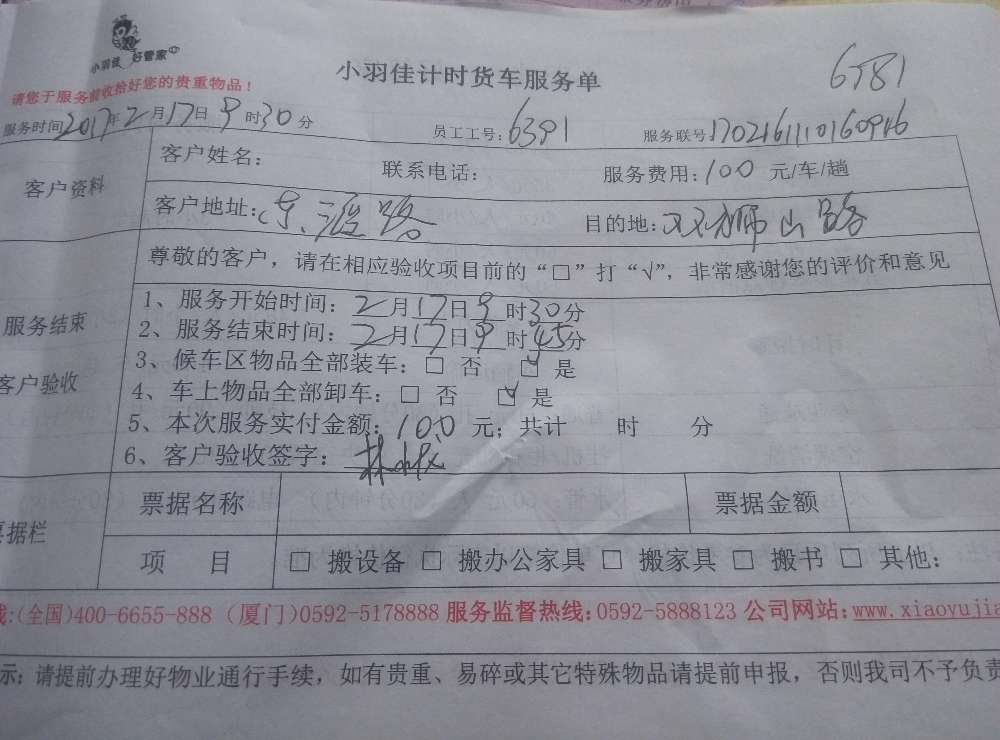 小羽佳 好管家
小羽佳计时货车服务单
6T81
请您于服务前收拾好您的贵重物品！
服务时间2017年2月17日9时30分 员工工号：6391 服务联号
客户资料
客户姓名： 联系电话： 服务费用：100元/车/趟
客户地址： 目的地：双狮山路
尊敬的客户，请在相应验收项目前的“□”打“√”，非常感谢您的评价和意见
服务结束
客户验收
1、服务开始时间：2月17日9时30分
2、服务结束时间：2月17日9时45分
3、候车区物品全部装车：□ 否 ☑ 是
4、车上物品全部卸车：□ 否 ☑ 是
5、本次服务实付金额：100元；共计 时 分
6、客户验收签字：
票据栏
票据名称 票据金额
项 目 □ 搬设备 □ 搬办公家具 □ 搬家具 □ 搬书 □ 其他：
线：(全国)400-6655-888（厦门)0592-5178888 服务监督热线：0592-5888123 公司网站：www.xiaoyujia
示：请提前办理好物业通行手续，如有贵重、易碎或其它特殊物品请提前申报，否则我司不予负责